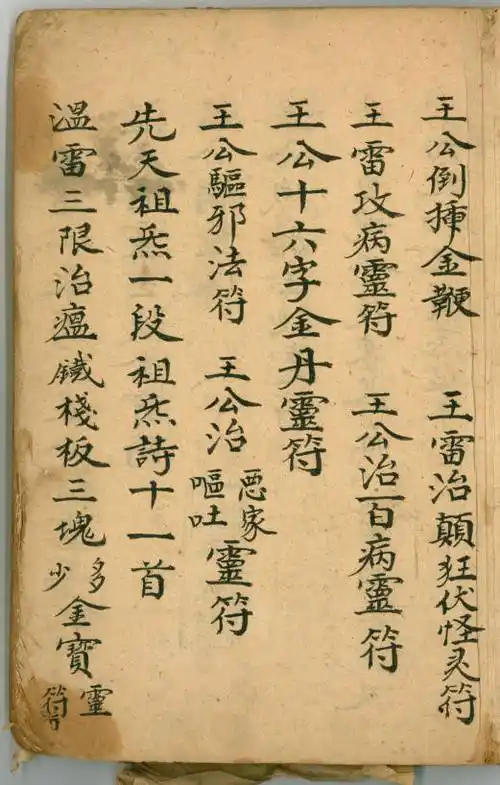 王公倒揷金鞭 王雷治顛狂伏怪灵符
王雷攻病靈符 王公治一百病靈符
王公十六字金丹靈符
王公驅邪法符 王公治惡家嘔吐靈符
先天祖炁一段祖炁詩十一首
溫雷三限治瘟鐵棧板三塊多少金寶靈符